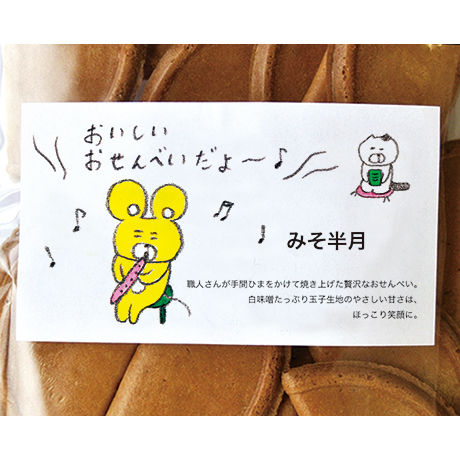 おいしい
おせんべいだよ〜♪
みそ半月
職人さんが手間ひまをかけて焼き上げた贅沢なおせんべい。
白味噌たっぷり玉子生地のやさしい甘さは、
ほっこり笑顔に。